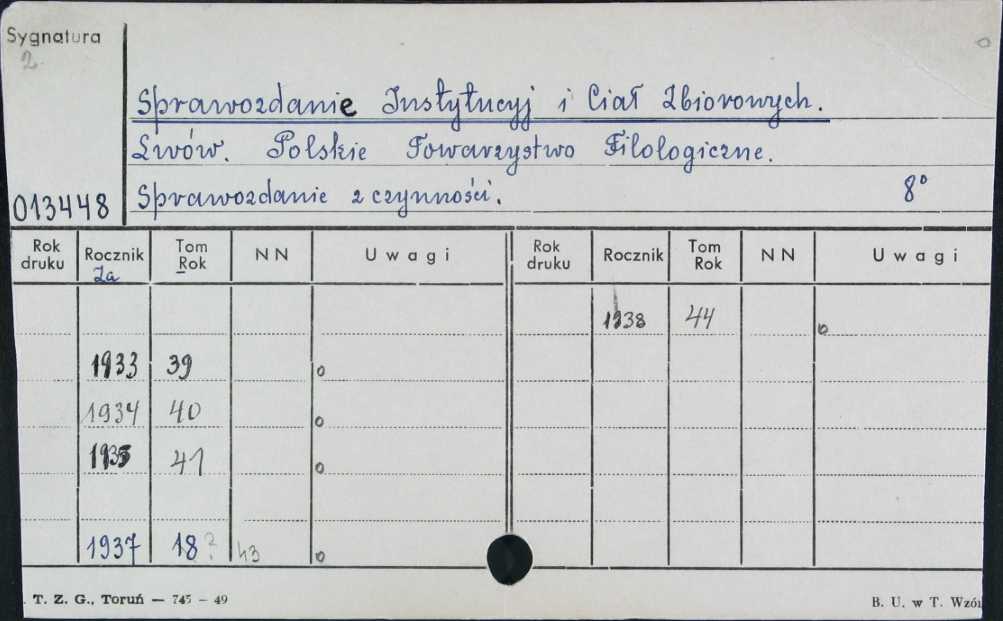 Sygnatura
2
Sprawozdanie Instytucyj i Ciał Zbiorowych.
Lwów. Polskie Towarzystwo Filologiczne.
Sprawozdanie z czynności. 8°
013448
Rok druku Rocznik Tom Rok N N Uwagi Rok druku Rocznik Tom Rok N N Uwagi
Za
1938 44 o
1933 39 o
1934 40 o
1935 41 o
1937 18? 43 o
. T. Z. G., Toruń — 745 – 49 B. U. w T. Wzó